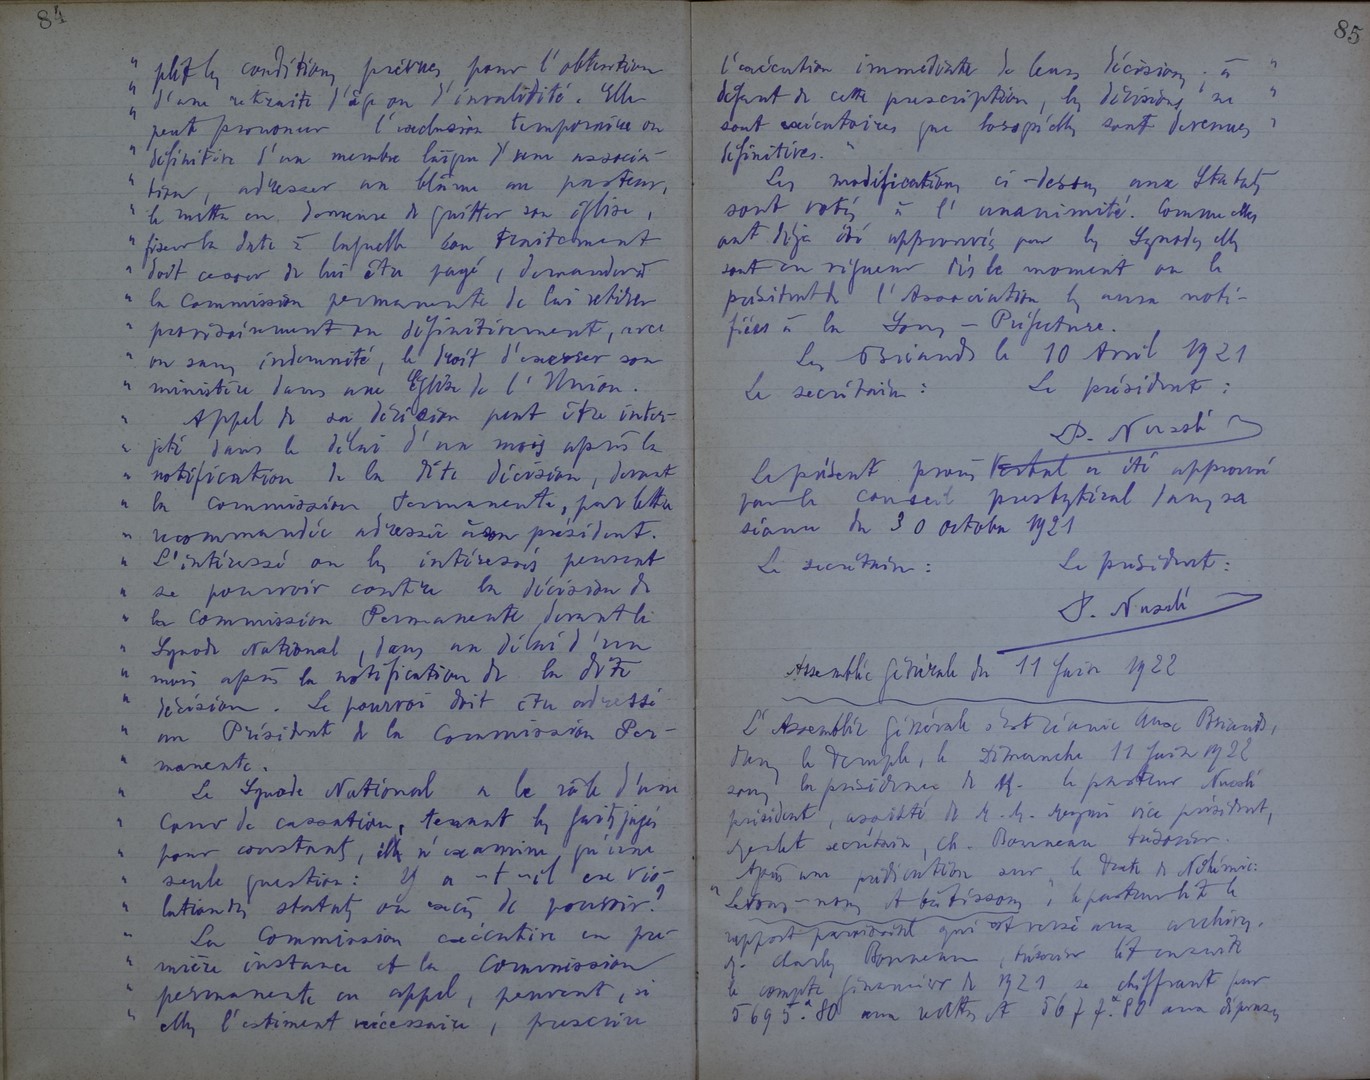 84
" plit les conditions prévues pour l'obtention
" d'une retraite d'âge ou d'invalidité. Elle
" peut prononcer l'exclusion temporaire ou
" définitive d'un membre laïque d'une associa-
" tion, adresser un blâme au pasteur,
" le mettre en demeure de quitter son église,
" fixer la date à laquelle son traitement
" doit cesser de lui être payé, demander à
" la Commission permanente de lui retirer
" provisoirement ou définitivement, avec
" ou sans indemnité, le droit d'exercer son
" ministère dans une Église de l'Union.
" Appel de sa décision peut être inter-
" jeté dans le délai d'un mois après la
" notification de la dite décision, devant
" la Commission Permanente, par lettre
" recommandée adressée à son président.
" L'intéressé ou les intéressés peuvent
" se pourvoir contre la décision de
" la Commission Permanente devant le
" Synode National, dans un délai d'un
" mois après la notification de la dite
" décision. Le pourvoi doit être adressé
" au Président de la Commission Per-
" manente.
" Le Synode National a le rôle d'une
" Cour de cassation, tenant les faits jugés
" pour constants, il n'examine qu'une
" seule question: Y a-t-il eu vio-
" lation des statuts ou excès de pouvoir?
" La Commission exécutive en pre-
" mière instance et la Commission
" permanente en appel, peuvent, si
" elles l'estiment nécessaire, prescrire
85
l'exécution immédiate de leurs décisions; à "
défaut de cette prescription, les décisions ne "
sont exécutoires que lorsqu'elles sont devenues "
définitives. "
Les modifications ci-dessus aux Statuts
sont votés à l'unanimité. Comme elles
ont déjà été approuvés par les Synodes elles
sont en vigueur dès le moment où le
président de l'Association les aura noti-
fiées à la Sous-Préfecture.
Les Briands le 10 Avril 1921
Le secrétaire: Le président:
P. Nuesch
Le présent procès Verbal a été approuvé
par le conseil presbytéral dans sa
séance du 30 octobre 1921
Le secrétaire: Le président:
P. Nuesch
Assemblée générale du 11 Juin 1922
L'Assemblée générale s'est réunie aux Briands,
dans le Temple, le Dimanche 11 Juin 1922
sous la présidence de M. le pasteur Nuesch
président, assisté de M. M. vice président,
secrétaire, Ch. Bonneau trésorier.
Après une prédication sur le texte de Néhémie:
"Levons-nous et bâtissons", le pasteur lit le
rapport qui est versé aux archives.
M. Charles Bonneau, trésorier lit ensuite
le compte financier de 1921 se chiffrant par
5695.80 aux recettes et 5677.80 aux dépenses